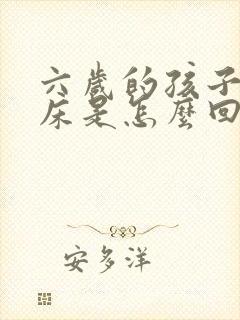 六歲的孩子
床是怎麼回
安多洋